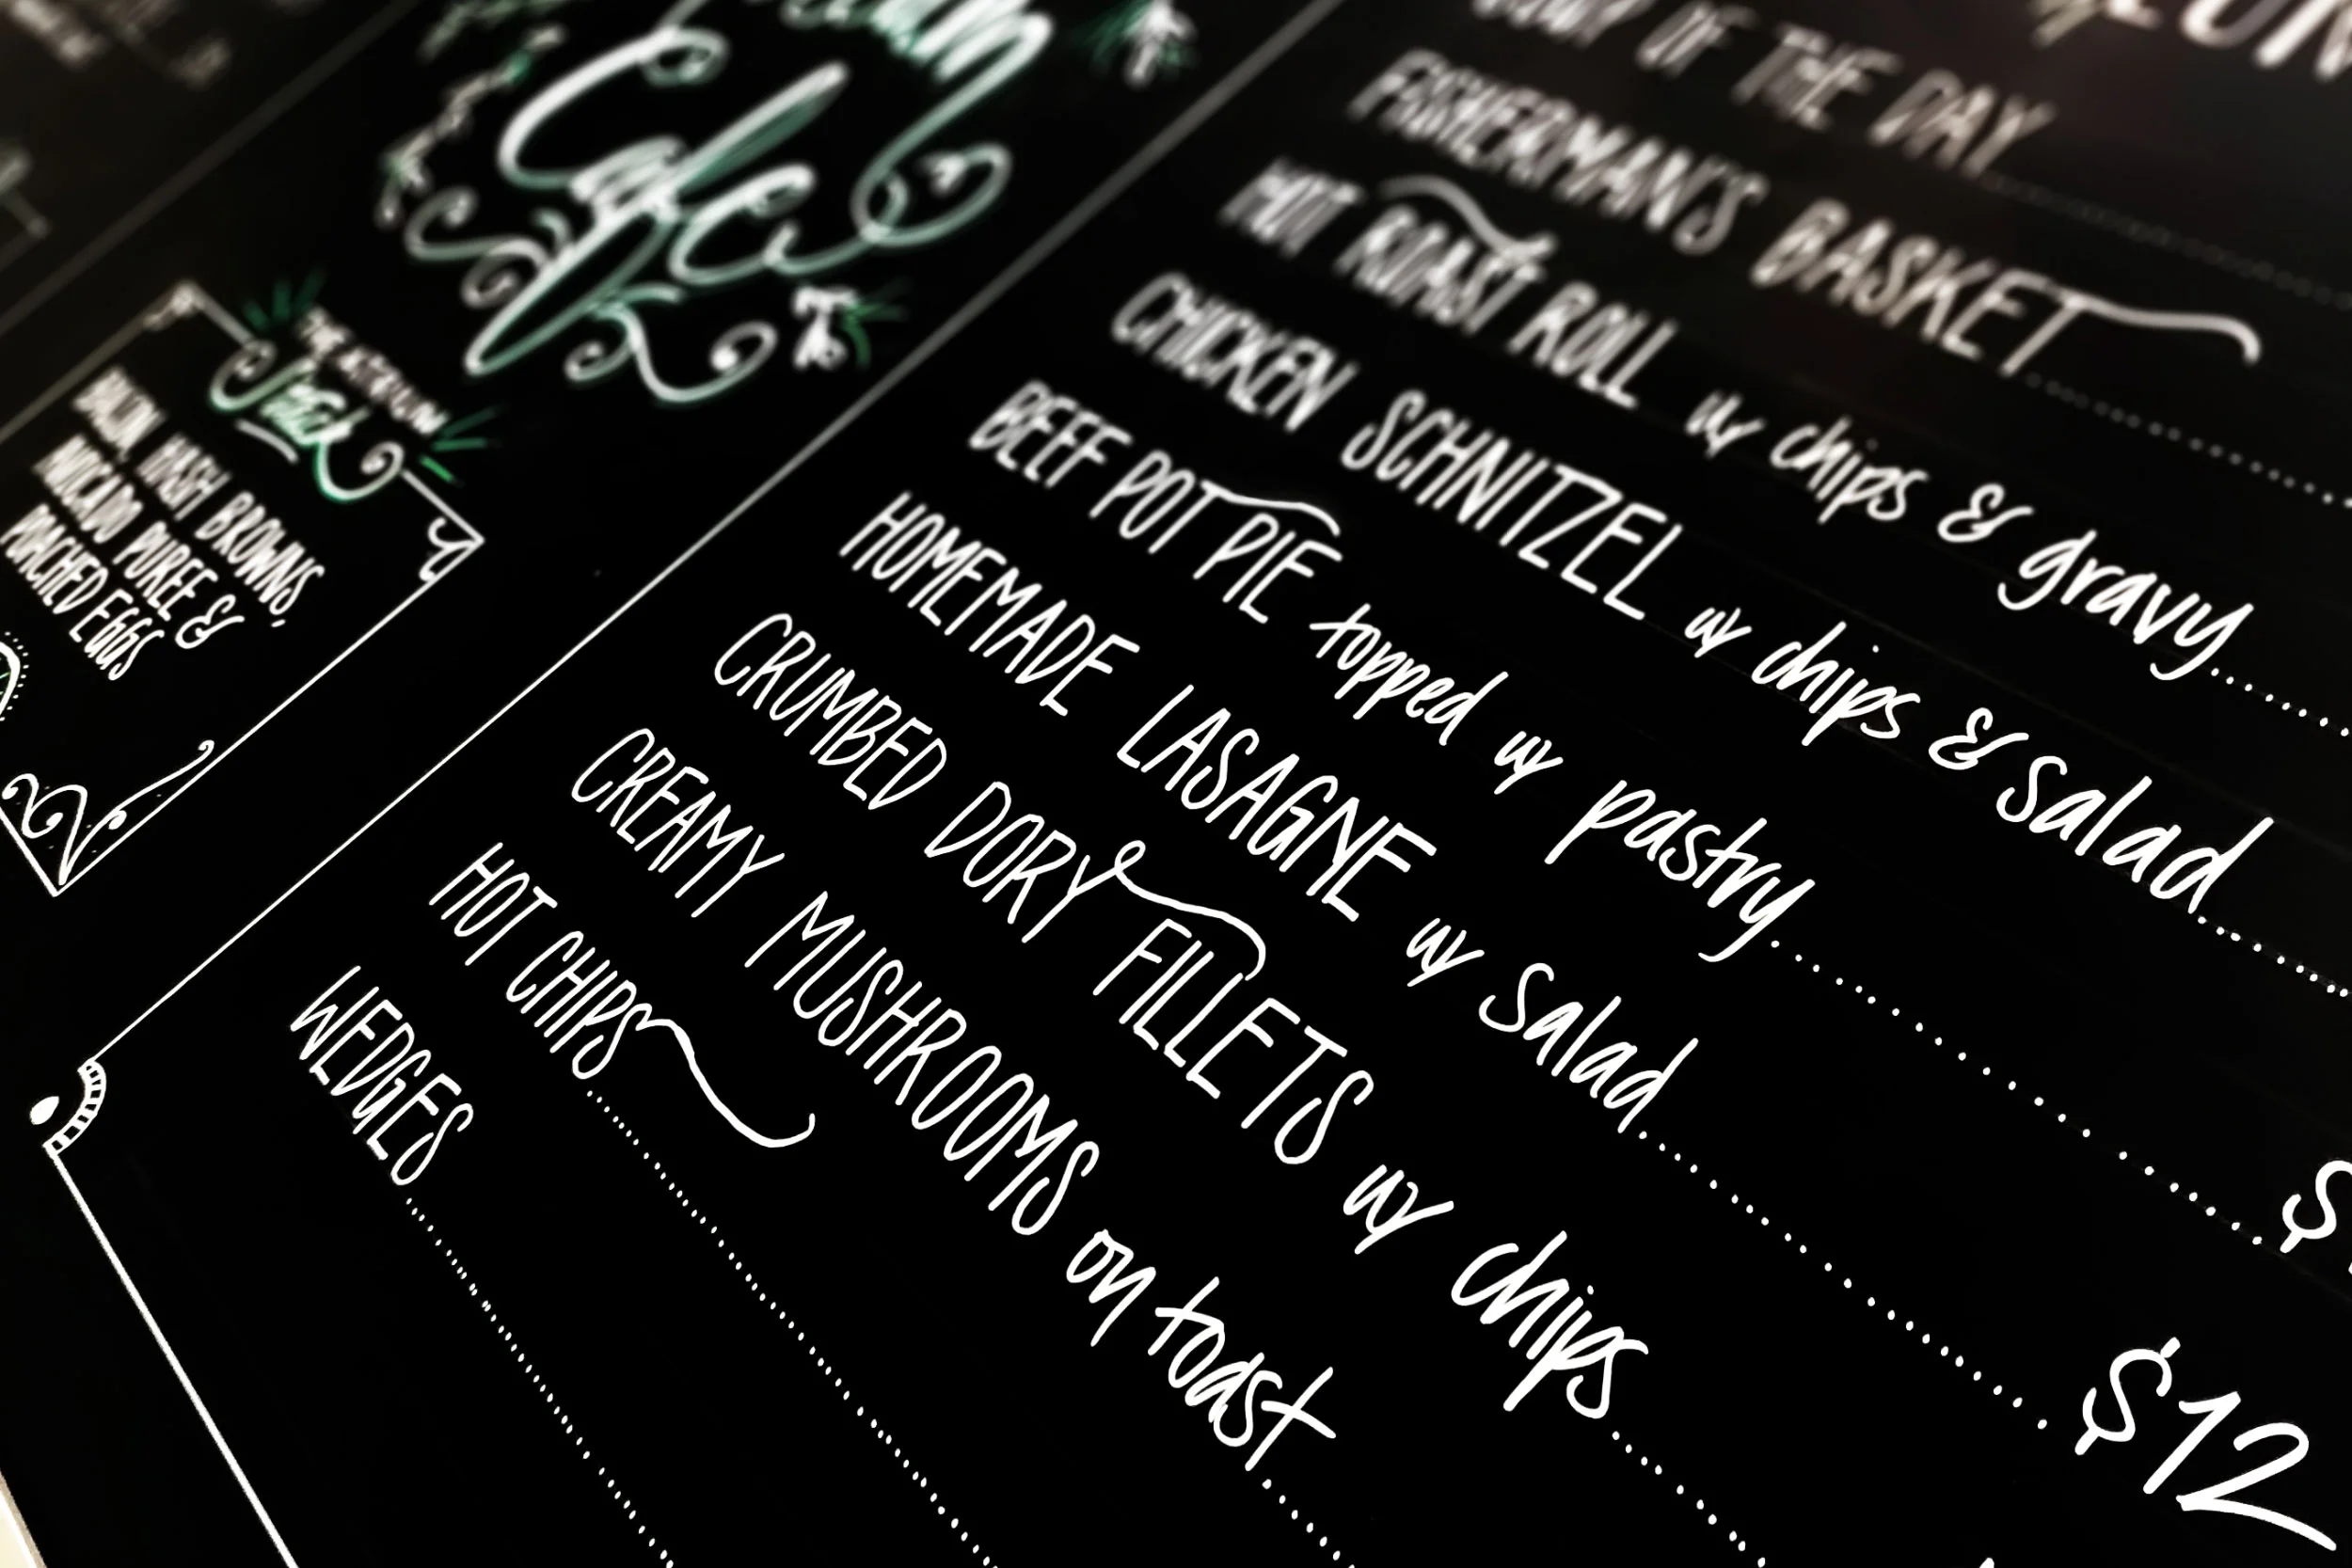 Cafe
THE ATRIUM
Stack
HASH BROWNS,
AVOCADO PUREE &
POACHED EGGS
OF THE DAY
FISHERMAN'S BASKET
HOT ROAST ROLL w chips & gravy
CHICKEN SCHNITZEL w chips & salad
BEEF POT PIE topped w pastry
HOMEMADE LASAGNE w salad
CRUMBED DORY FILLETS w chips
$12
CREAMY MUSHROOMS on toast
HOT CHIPS
WEDGES